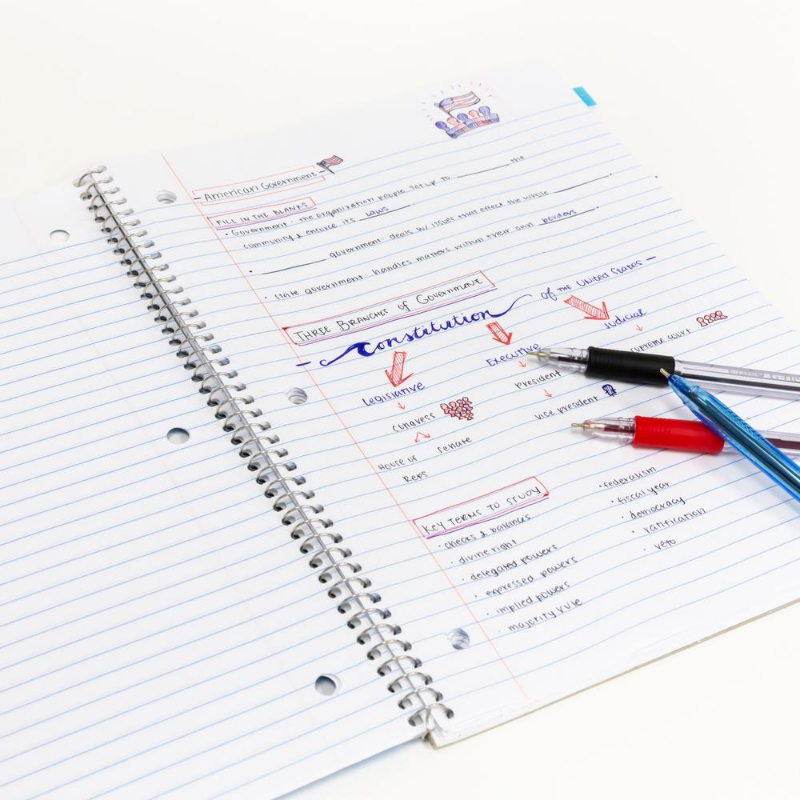 American Government
FILL IN THE BLANKS
• Government: the organization people set up to ________ the
community & enforce its laws.
• ________ government: deals w/ issues that effect the whole ________.
• State government: handles matters within their own borders.
THREE BRANCHES OF GOVERNMENT
- Constitution of the United States -
Legislative Executive Judicial
Congress President SUPREME COURT
House of Reps Senate Vice president
KEY TERMS TO STUDY
• checks & balances • federalism
• divine right • fiscal year
• delegated powers • democracy
• expressed powers • ratification
• implied powers • veto
• majority rule